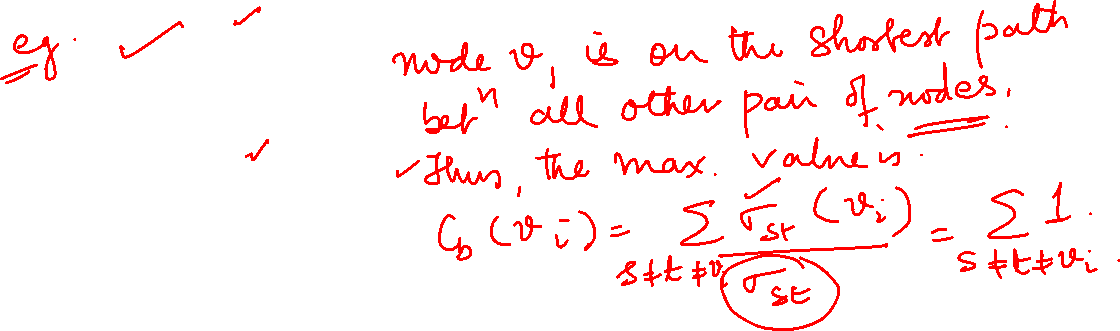 eg. node v₁ is on the shortest path
betⁿ all other pair of nodes.
Thus, the max. value is.
C_b (v_i) = Σ_{s≠t≠v_i} σ_st (v_i) / σ_st = Σ_{s≠t≠v_i} 1.